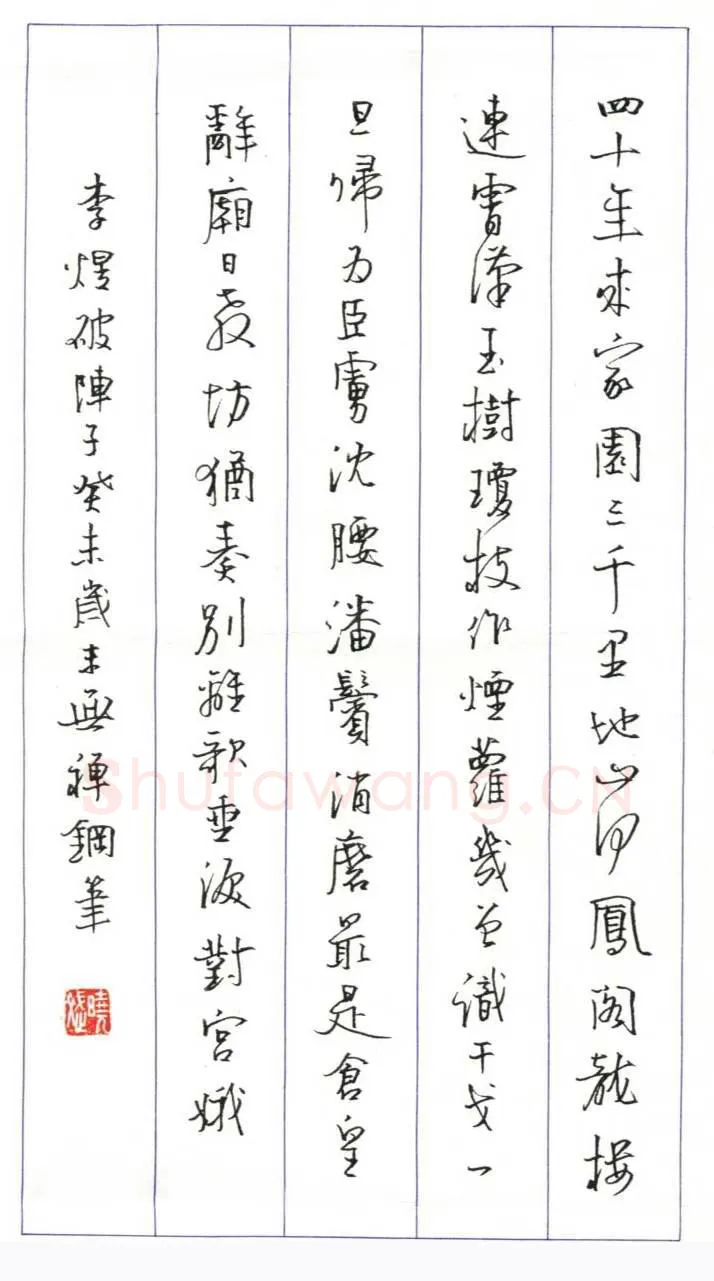 四十年來家園三千里地山河鳳阁龍樓
連霄漢玉樹瓊枝作煙蘿幾曾識干戈一
旦歸为臣虜沈腰潘鬢消磨最是倉皇
辭廟日教坊猶奏別離歌垂淚對宮娥
李煜破陣子癸未歲末無禪鋼筆
Shufawang.CN